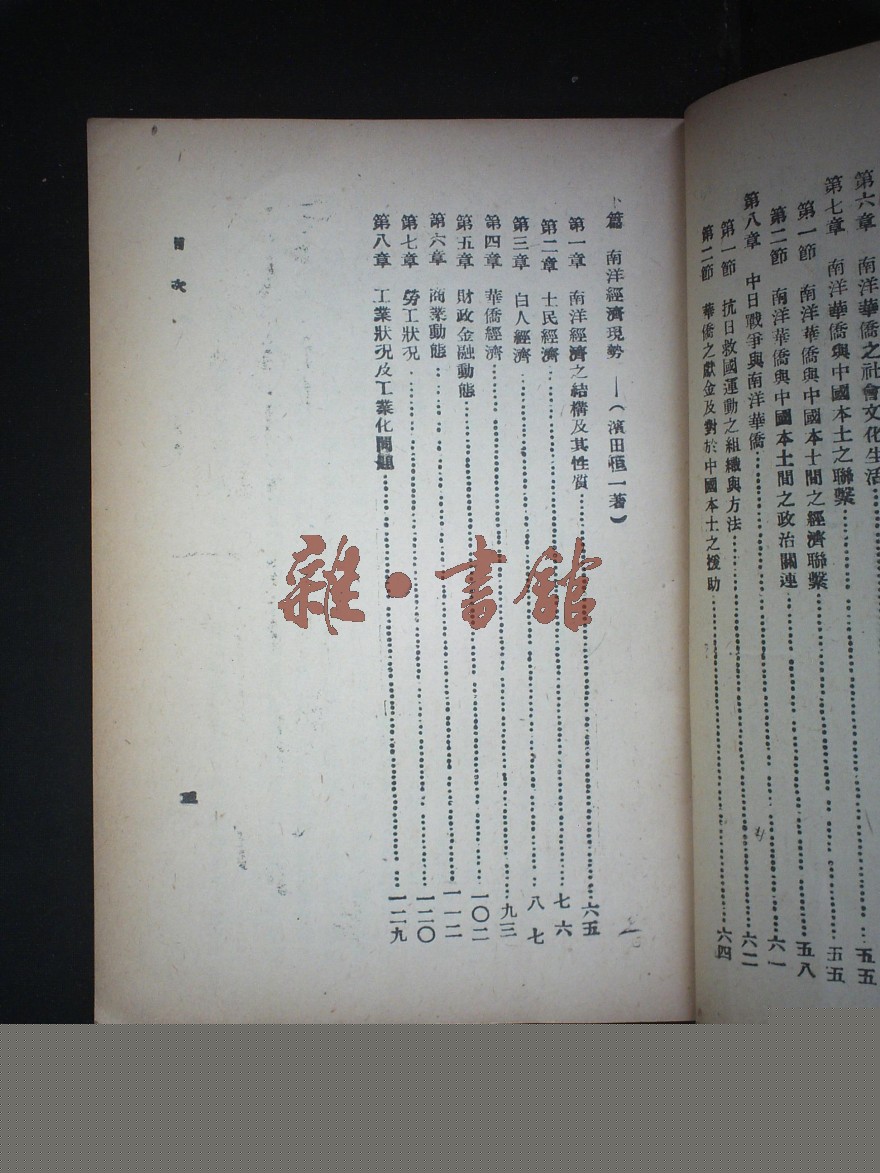 第六章 南洋華僑之社會文化生活……五五
第七章 南洋華僑與中國本土之聯繫……五五
第一節 南洋華僑與中國本土間之經濟聯繫……五八
第二節 南洋華僑與中國本土間之政治關連……六一
第八章 中日戰爭與南洋華僑……六二
第一節 抗日救國運動之組織與方法
第二節 華僑之獻金及對於中國本土之援助……六四
下篇 南洋經濟現勢 —(濱田恒一著)
第一章 南洋經濟之結構及其性質……六五
第二章 土民經濟……七六
第三章 白人經濟……八七
第四章 華僑經濟……九三
第五章 財政金融動態……一〇二
第六章 商業動態……一一二
第七章 勞工狀況……一二〇
第八章 工業狀況及工業化問題……一二九
目次
雜·書館